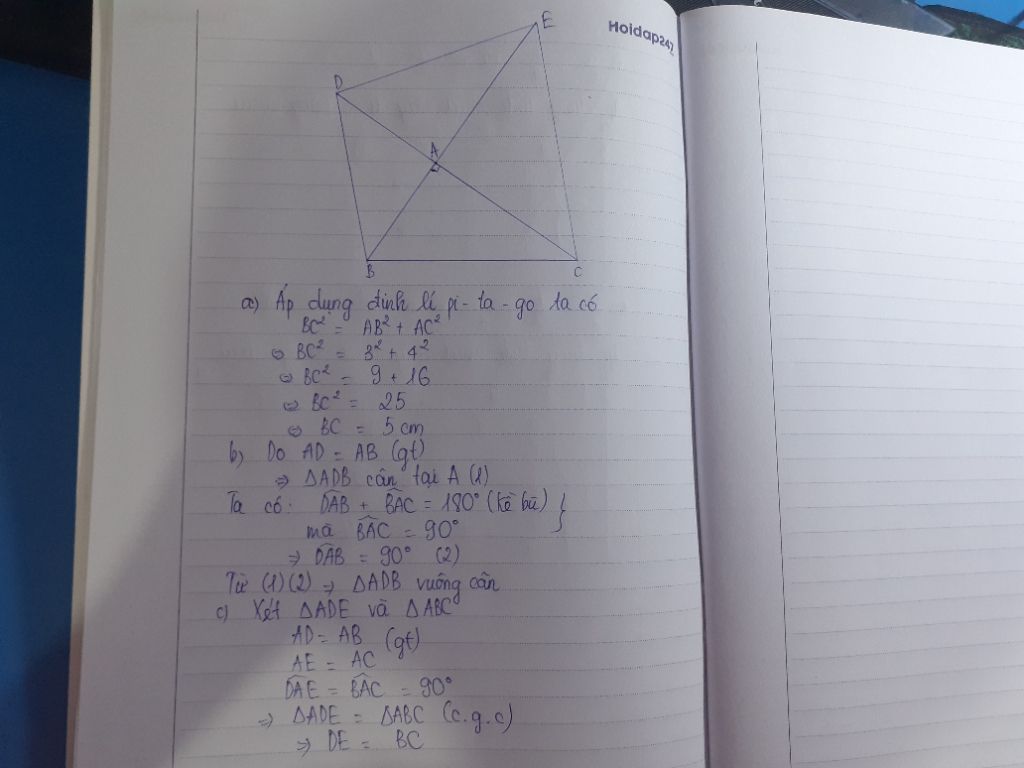 Hoidap247
E
D
A
B
C
a) Áp dụng định lí pi-ta-go ta có
BC² = AB² + AC²
⇔ BC² = 3² + 4²
⇔ BC² = 9 + 16
⇔ BC² = 25
⇔ BC = 5 cm
b) Do AD = AB (gt)
⇒ ΔADB cân tại A (1)
Ta có: D̂AB + B̂AC = 180° (kề bù) }
mà B̂AC = 90°
⇒ D̂AB = 90° (2)
Từ (1)(2) ⇒ ΔADB vuông cân
c) Xét ΔADE và ΔABC
AD = AB (gt)
AE = AC
D̂AE = B̂AC = 90°
⇒ ΔADE = ΔABC (c.g.c)
⇒ DE = BC